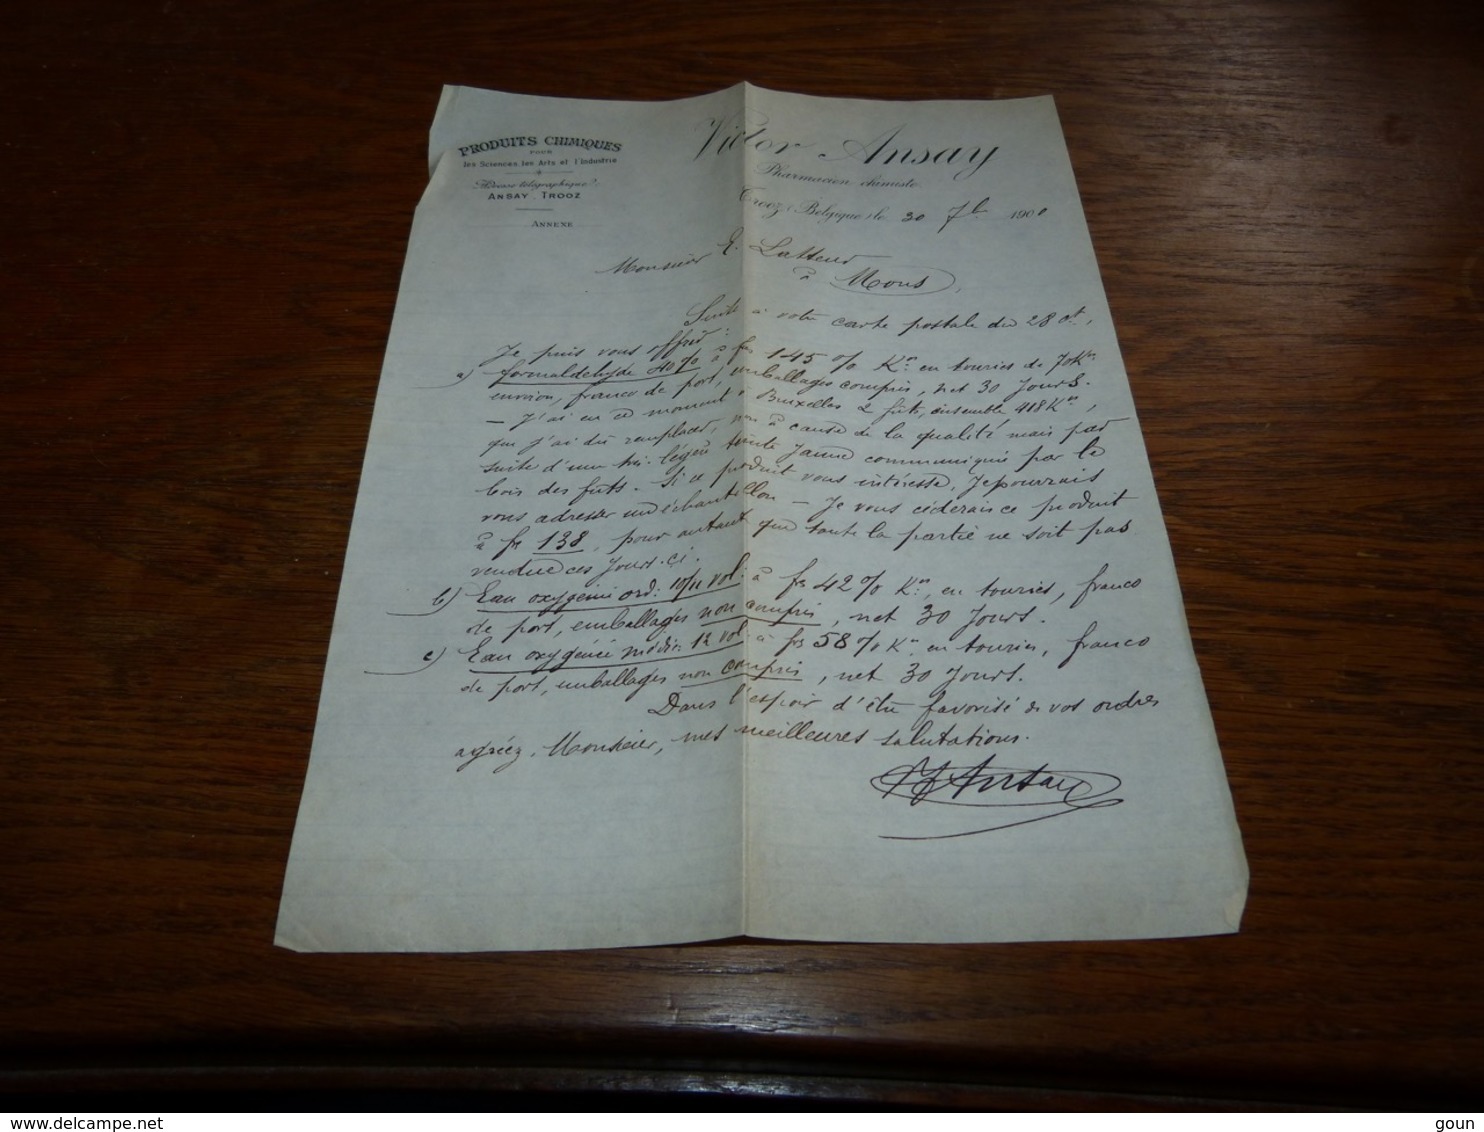 PRODUITS CHIMIQUES
POUR
les Sciences, les Arts et l'Industrie
Adresse télégraphique:
ANSAY TROOZ
ANNEXE
Victor Ansay
Pharmacien chimiste
Trooz (Belgique) le 30 7bre 1900
Monsieur E.
à Mons,
Suite à votre carte postale du 28 ct,
Je puis vous offrir:
a) formaldehyde 40% à frs 145 % Kos en touries de 70Kos
environ, franco de port, emballages compris, net 30 Jours.
- J'ai en ce moment à Bruxelles 2 fûts, ensemble 418Kos,
que j'ai dû remplacer, non à cause de la qualité mais par
suite d'une très légère teinte jaune communiquée par le
bois des fûts. Si ce produit vous intéresse, Je pourrais
vous adresser un échantillon - Je vous céderais ce produit
à frs 138, pour autant que toute la partie ne soit pas
vendue ces Jours-ci.
b) Eau oxygénée ord: 10/11 vol: à frs 42 % Kos, en touries, franco
de port, emballages non compris, net 30 Jours.
c) Eau oxygénée médic: 12 vol: à frs 58 % Kos en touries, franco
de port, emballages non compris, net 30 Jours.
Dans l'espoir d'être favorisé de vos ordres
agréez, Monsieur, mes meilleures salutations.
V Ansay
www.delcampe.net
goun